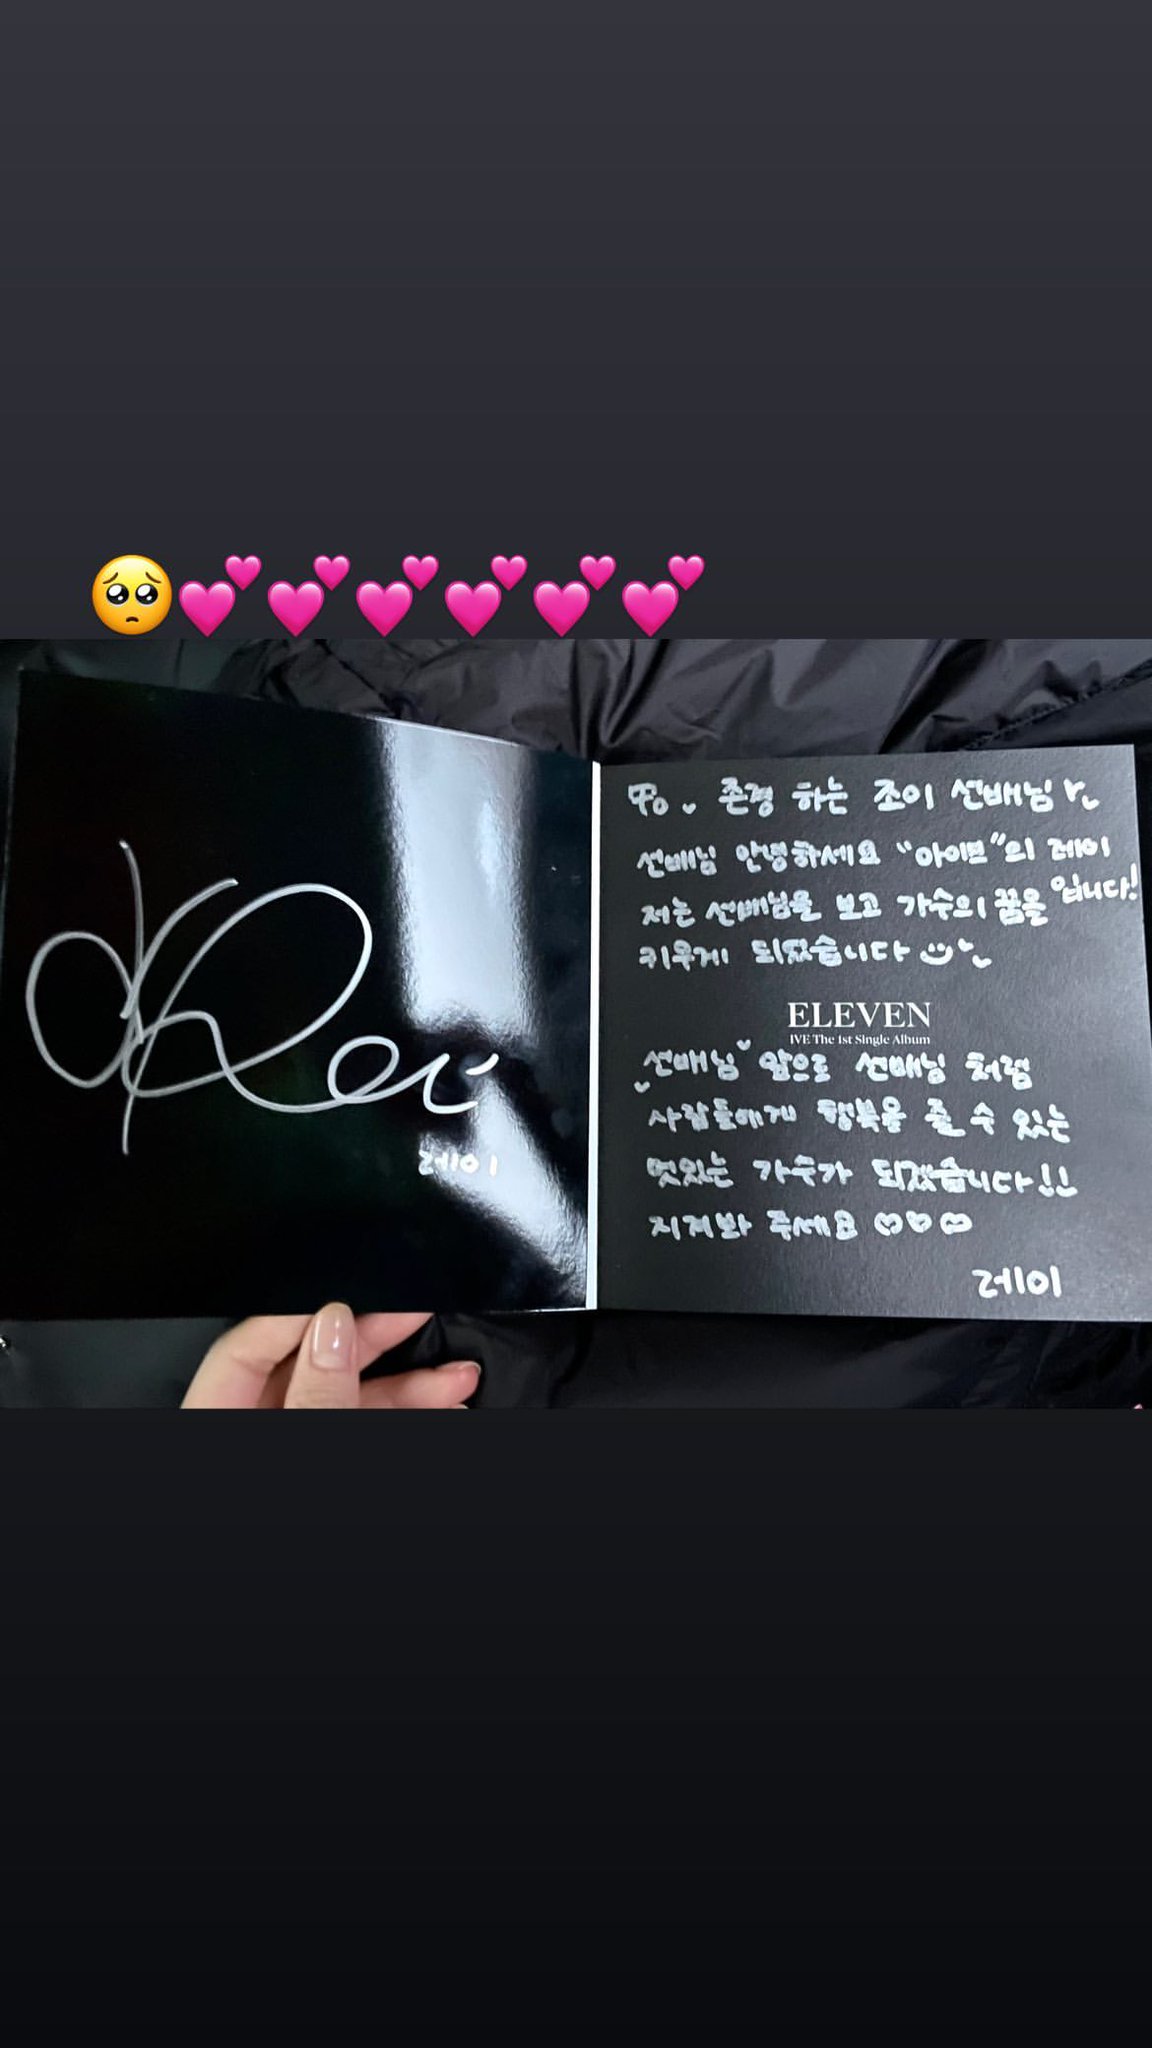 Rei
레이
To. 존경 하는 조이 선배님
선배님 안녕하세요 "아이브"의 레이
입니다!
저는 선배님을 보고 가수의 꿈을
키우게 되었습니다
ELEVEN
IVE The 1st Single Album
선배님 앞으로 선배님 처럼
사람들에게 행복을 줄 수 있는
멋있는 가수가 되겠습니다!!
지켜봐 주세요
레이